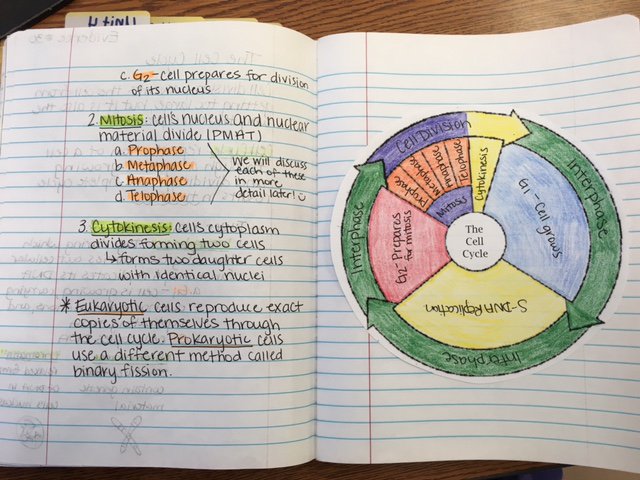 c. G2-cell prepares for division
of its nucleus
2. Mitosis: cell's nucleus and nuclear
material divide (PMAT)
a. Prophase
b. Metaphase
c. Anaphase
d. Telophase
We will discuss
each of these
in more
detail later!
3. Cytokinesis: cells cytoplasm
divides forming two cells
↳ forms two daughter cells
with identical nuclei
* Eukaryotic cells reproduce exact
copies of themselves through
the cell cycle. Prokaryotic cells
use a different method called
binary fission.
Cell Division
Interphase
Interphase
Interphase
Prophase
Metaphase
Anaphase
Telophase
Mitosis
Cytokinesis
G1-Cell grows
S-DNA Replication
G2-Prepares
for mitosis
The
Cell
Cycle